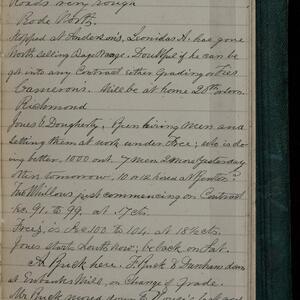 Roads very rough
Rode North.
Stopped at Anderson's. Leonidas A. has gone
North selling Page Range. Doubtful if he can be
got into any Contract either Grading or Ties.
Camerons. Will be at home 20th
Richmond
Jones & Dougherty. Upon hiring men and
setting them at work under Force; who is do
ing better. 1000 out. 7 men 2 more yesterday
often tomorrow. 10 or 12 hired at Benton?
The Willows just commencing on Contract
sec. 91. to 99. at 17cts.
Force, is Sec 100 to 104. at 18½cts.
Jones starts South now; be back on Sat.
A Buck here. F. Buck & Dunham down
at Eubanks Mill, on Change of Grade.
Mr Buck moved down to